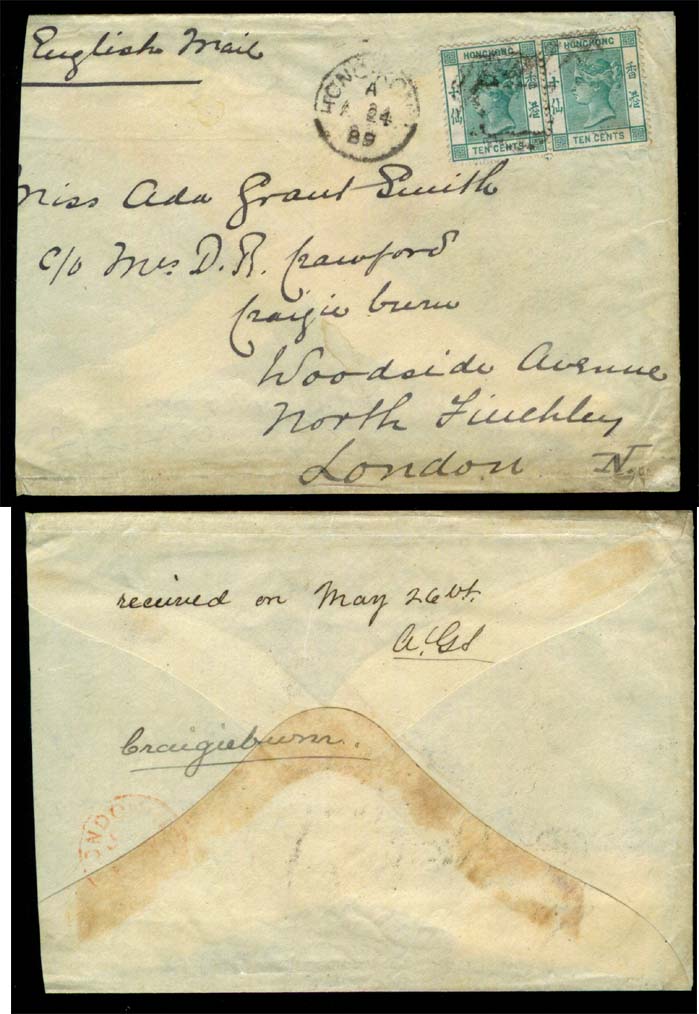 English Mail
HONG KONG
A
AP 24
89
HONGKONG
TEN CENTS
HONGKONG
TEN CENTS
Miss Ada Grant Smith
c/o Mrs D. R. Crawford
Craigieburn
Woodside Avenue
North Finchley
London N.
received on May 26th.
A.G.S
Craigieburn.
LONDON